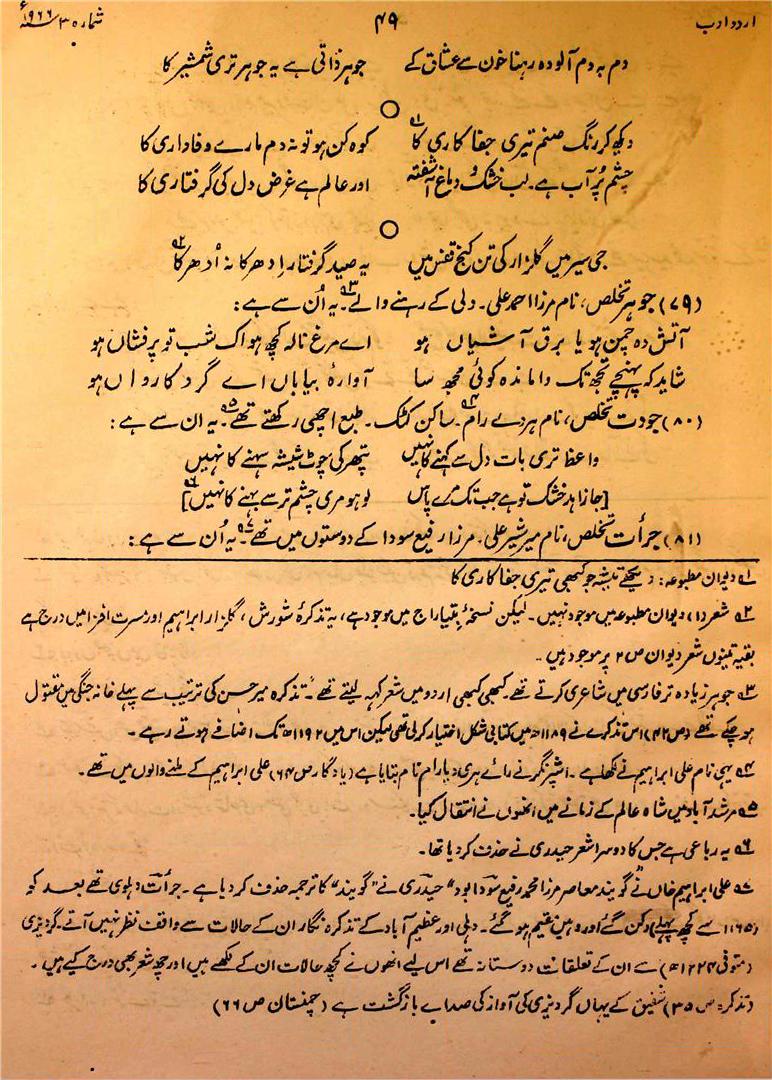 اردو ادب ۴۹ شمارہ ۳ سنہ ۱۹۶۶ء
دم بہ دم آلودہ رہنا خون سے عشاق کے جوہر ذاتی ہے یہ جوہر تری شمشیر کا
دیکھ کر رنگ صنم تیری جفا کاری کا ۹۱ کوہ کن ہو تو نہ دم مارے وفاداری کا
چشم پُر آب ہے۔ لب خشک و دماغ آشفتہ اور عالم ہے غرض دل کی گرفتاری کا
جی سیر میں گلزار کی تن کنج قفس میں یہ صید گرفتار اِدھر کا نہ اُدھر کا ۹۲
(۷۹) جوہر تخلص، نام مرزا احمد علی۔ دلی کے رہنے والے ۹۳۔ یہ اُن سے ہے:
آتش دہ چمن ہو یا برق آشیاں ہو اے مرغ نالہ کچھ ہو اک شب تو پر فشاں ہو
شاید کہ پہنچے تجھ تک واماندہ کوئی مجھ سا آوارۂ بیاباں اے گرد کارواں ہو
(۸۰) جودت تخلص، نام ہردے رام ۹۴۔ ساکن کٹک۔ طبع اچھی رکھتے تھے ۹۵۔ یہ ان سے ہے:
واعظا تری بات دل سے کہنے کا نہیں پتھر کی چوٹ شیشہ سہنے کا نہیں
[جا زاہد خشک تو ہے جب تک مرے پاس لوہو مری چشم تر سے بہنے کا نہیں] ۹۶
(۸۱) جرأت تخلص، نام میر شیر علی۔ مرزا رفیع سودا کے دوستوں میں تھے ۹۷۔ یہ اُن سے ہے:
۹۱ دیوان مطبوعہ: دیکھے تیشہ جو کبھی تیری جفا کاری کا
۹۲ شعر (۱) دیوان مطبوعہ میں موجود نہیں۔ لیکن نسخۂ بتیا راج میں موجود ہے، یہ تذکرۂ شورش، گلزار ابراہیم اور مسرت افزا میں درج ہے
بقیہ تینوں شعر دیوان ص ۲ پر موجود ہیں۔
۹۳ جوہر زیادہ تر فارسی میں شاعری کرتے تھے۔ کبھی کبھی اردو میں شعر کہہ لیتے تھے۔ تذکرہ میر حسن کی ترتیب سے پہلے خانہ جنگی میں مقتول
ہو چکے تھے (ص ۴۲) اس تذکرے نے ۱۱۸۹ھ میں کتابی شکل اختیار کر لی تھی لیکن اس میں ۱۱۹۲ھ تک اضافے ہوتے رہے۔
۹۴ یہی نام علی ابراہیم نے لکھا ہے۔ اشپرنگر نے رائے ہری دیا رام نام بتایا ہے (یادگار ص ۶۴) علی ابراہیم کے ملنے والوں میں تھے۔
۹۵ مرشد آباد میں شاہ عالم کے زمانے میں انھوں نے انتقال کیا۔
۹۶ یہ رباعی ہے جس کا دوسرا شعر حیدری نے حذف کر دیا تھا۔
۹۷ علی ابراہیم خاں نے "گویند معاصر مرزا محمد رفیع سودا بود" حیدری نے "گویند" کا ترجمہ حذف کر دیا ہے۔ جرأت دہلوی تھے بعد کہ
(۱۱۶۵ سے کچھ پہلے) دکن گئے اور وہیں مقیم ہو گئے۔ دہلی اور عظیم آباد کے تذکرہ نگار ان کے حالات سے واقف نظر نہیں آتے۔ گردیزی
(متوفی ۱۲۲۴ھ) سے ان کے تعلقات دوستانہ تھے اس لیے انھوں نے کچھ حالات ان کے لکھے ہیں اور چھ شعر بھی درج کیے ہیں۔
(تذکرہ ص ۳۵) شفیق کے یہاں گردیزی کی آواز کی صداے بازگشت ہے (چمنستان ص ۶۶)